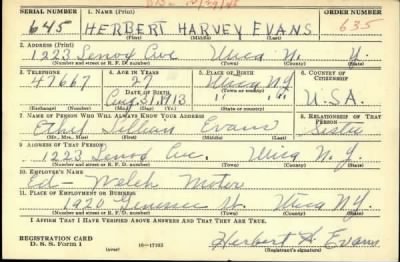 SERIAL NUMBER 1. NAME (Print) ORDER NUMBER
645 HERBERT HARVEY EVANS 635
(First) (Middle) (Last)
2. ADDRESS (Print)
1223 Lenox Ave Utica N. Y.
(Number and street or R. F. D. number) (Town) (County) (State)
3. TELEPHONE 4. AGE IN YEARS 5. PLACE OF BIRTH 6. COUNTRY OF CITIZENSHIP
47667 27 Utica NY
DATE OF BIRTH (Town or county)
Aug. 31, 1913 U.S.A.
(Exchange) (Number) (Mo.) (Day) (Yr.) (State or country)
7. NAME OF PERSON WHO WILL ALWAYS KNOW YOUR ADDRESS 8. RELATIONSHIP OF THAT PERSON
Ethel Lillian Evans Sister
(Mr., Mrs., Miss) (First) (Middle) (Last)
9. ADDRESS OF THAT PERSON
1223 Lenox Ave. Utica N. Y.
(Number and street or R. F. D. number) (Town) (County) (State)
10. EMPLOYER'S NAME
Ed- Welch Motor
11. PLACE OF EMPLOYMENT OR BUSINESS
1920 Genesee St. Utica N.Y.
(Number and street or R. F. D. number) (Town) (County) (State)
I AFFIRM THAT I HAVE VERIFIED ABOVE ANSWERS AND THAT THEY ARE TRUE.
REGISTRATION CARD
D. S. S. Form 1 16—17105 Herbert H. Evans
(Registrant's signature)